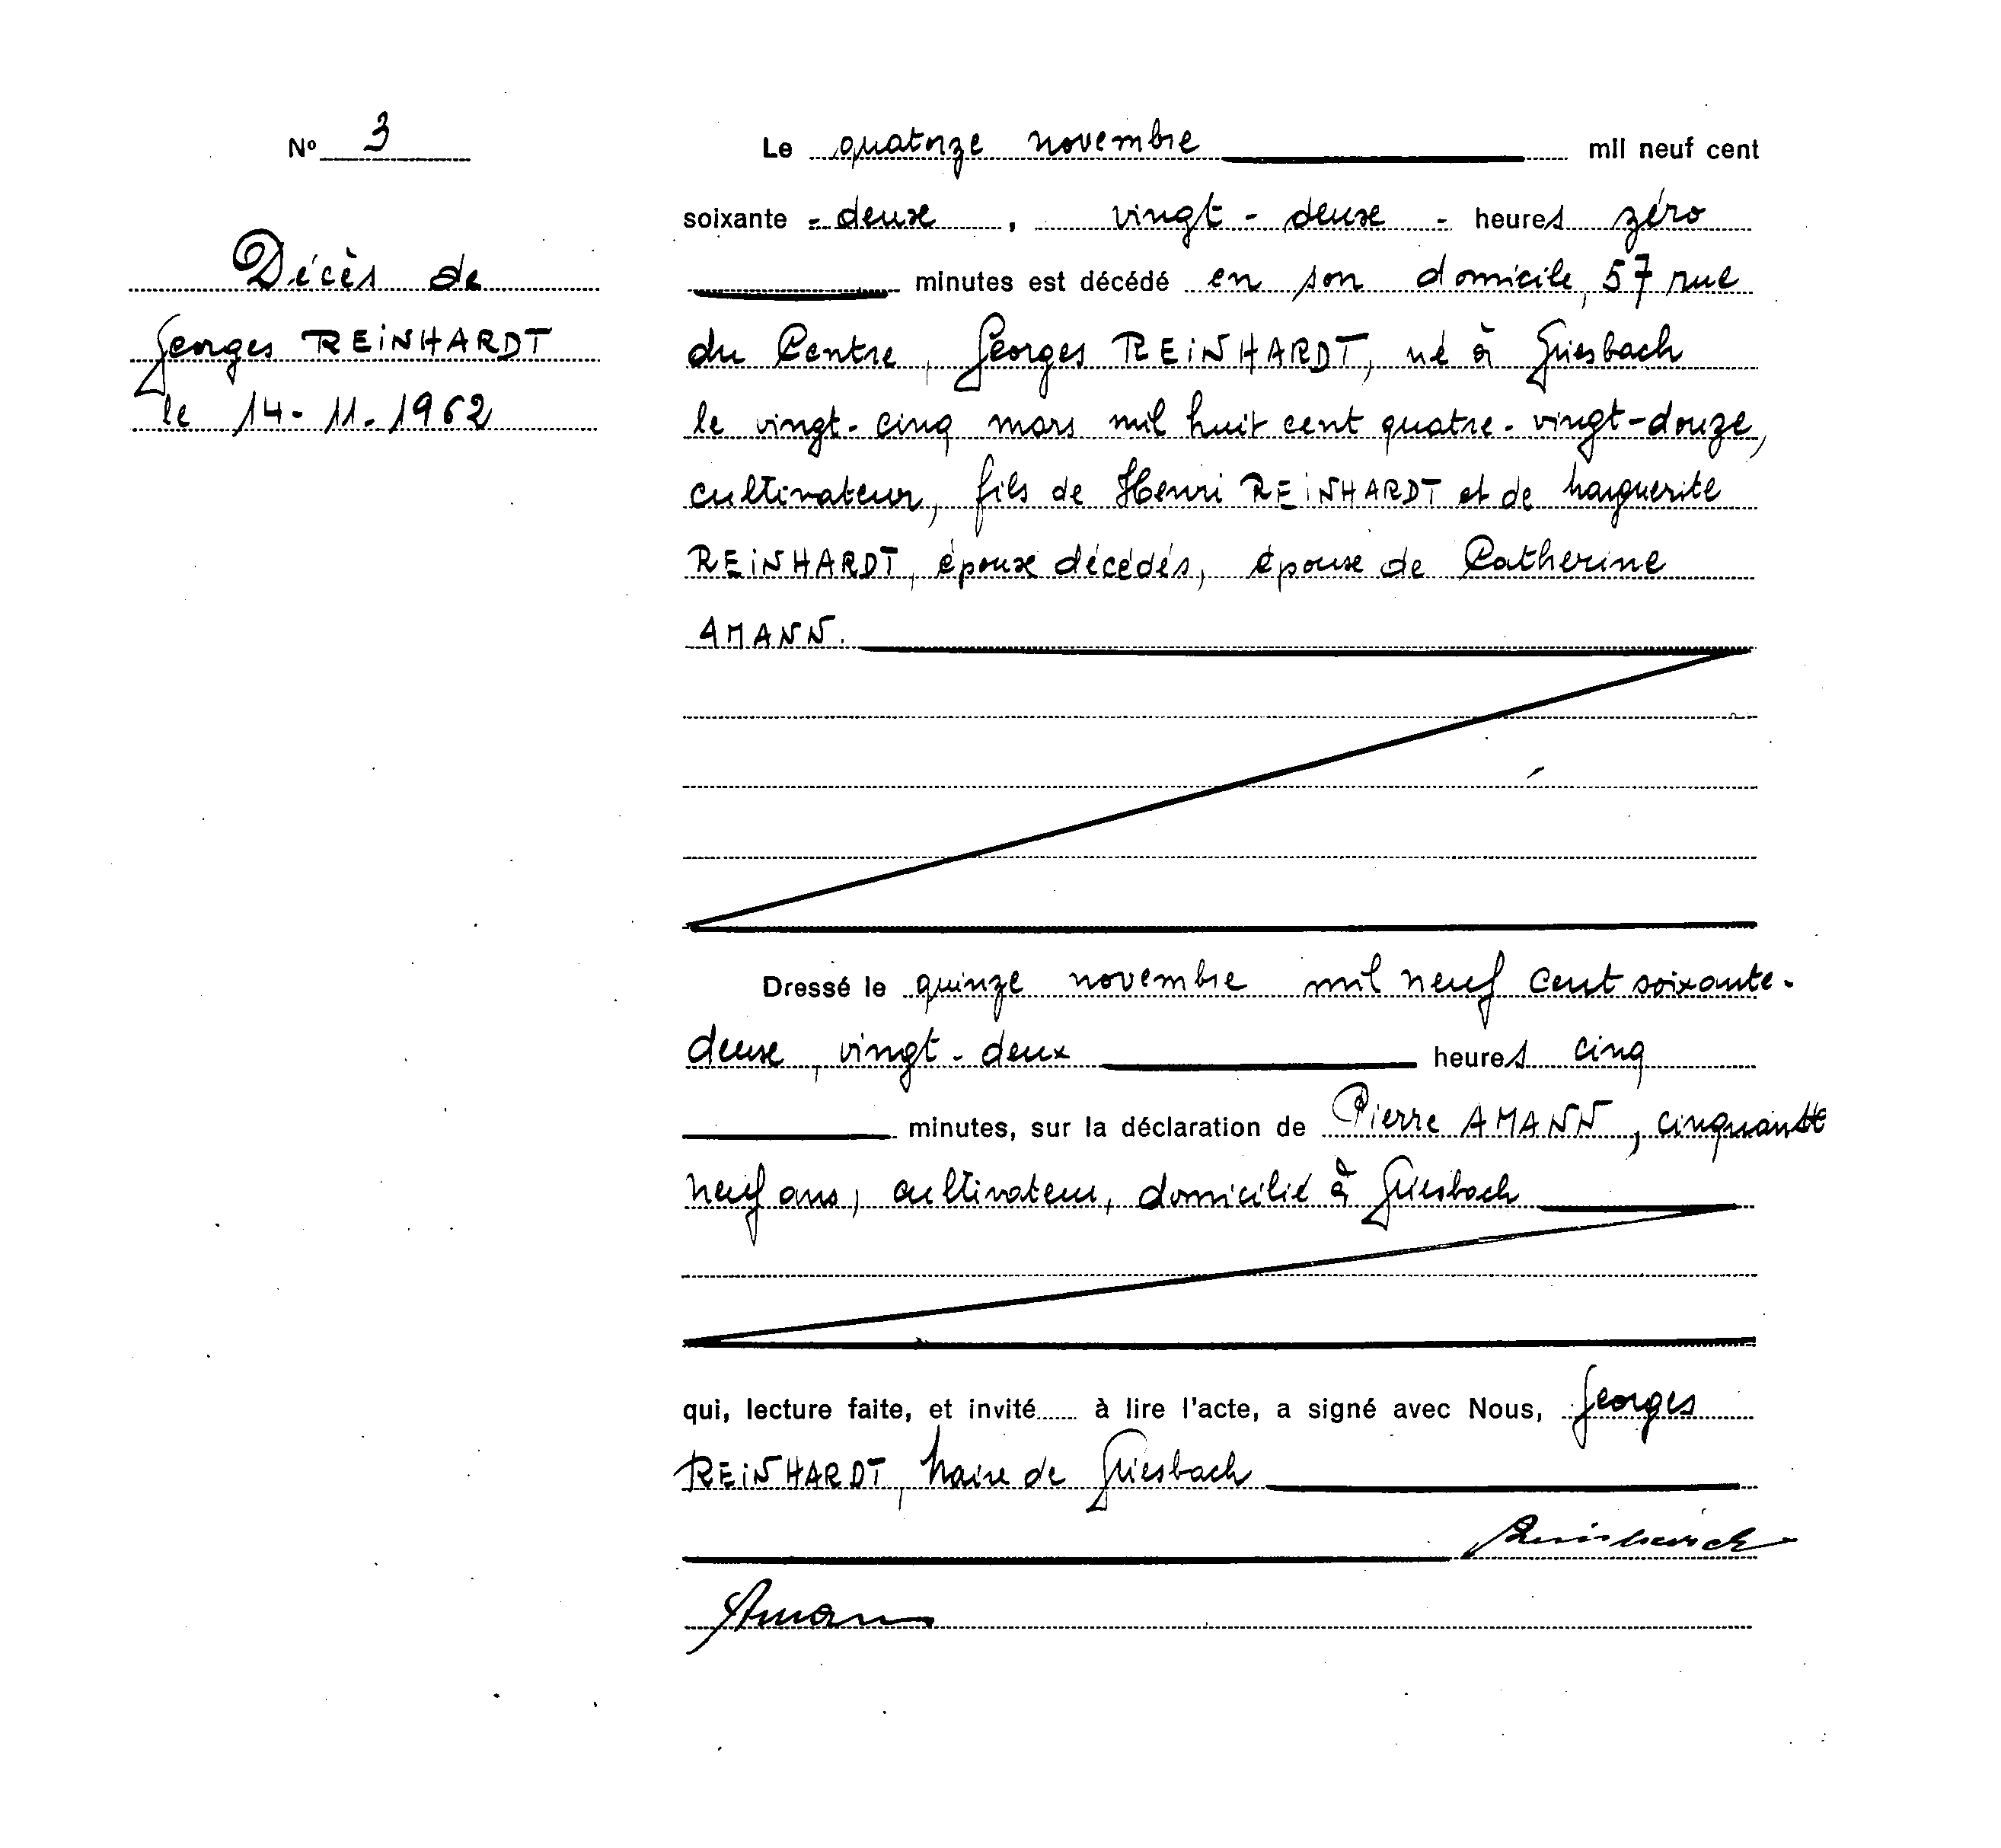 Nº 3
Décès de
Georges REINHARDT
le 14-11-1962
Le quatorze novembre mil neuf cent
soixante-deux, vingt-deux - heures zéro
minutes est décédé en son domicile, 57 rue
du Centre, Georges REINHARDT, né à Griesbach
le vingt-cinq mars mil huit cent quatre-vingt-douze,
cultivateur, fils de Henri REINHARDT et de Marguerite
REINHARDT, époux décédés, épouse de Catherine
AMANN.
Dressé le quinze novembre mil neuf cent soixante-
deux, vingt-deux heures cinq
minutes, sur la déclaration de Pierre AMANN, cinquante
neuf ans, cultivateur, domicilié à Griesbach
qui, lecture faite, et invité à lire l'acte, a signé avec Nous, Georges
REINHARDT, Maire de Griesbach
Reinhardt
Amann